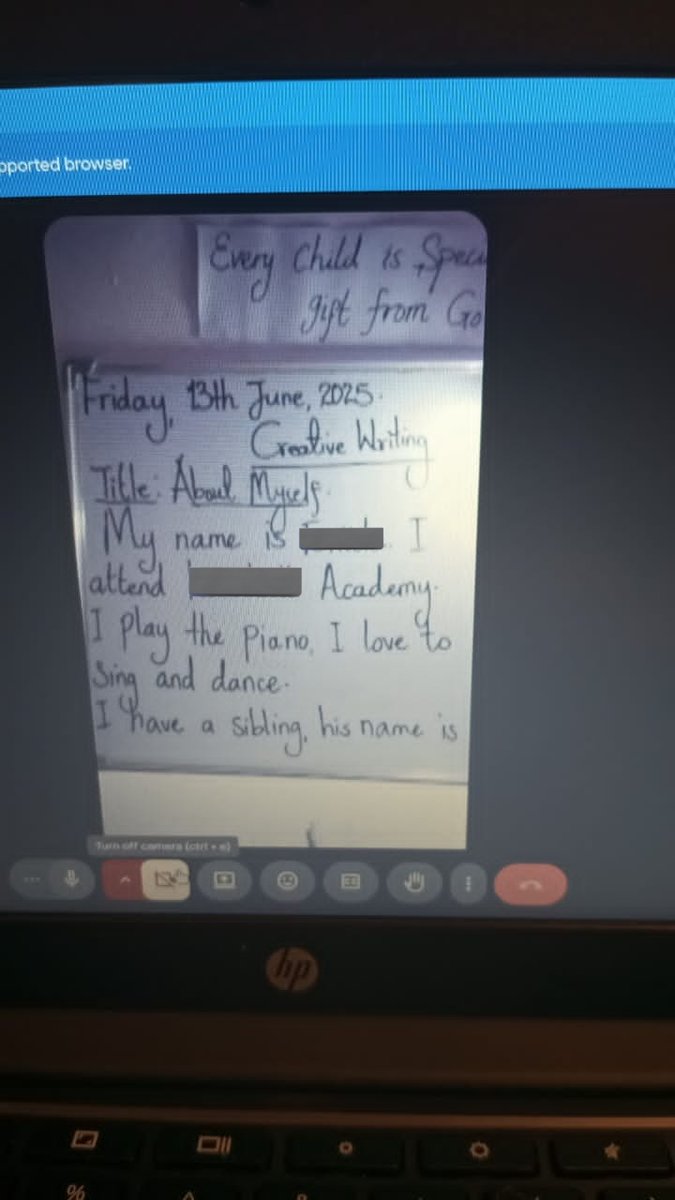 pported browser.
Every Child is Spec
gift from Go
Friday, 13th June, 2025.
Creative Writing
Title: About Myself.
My name is I
attend Academy.
I play the piano, I love to
Sing and dance.
I have a sibling, his name is
Turn off camera (ctrl + e)
hp
%